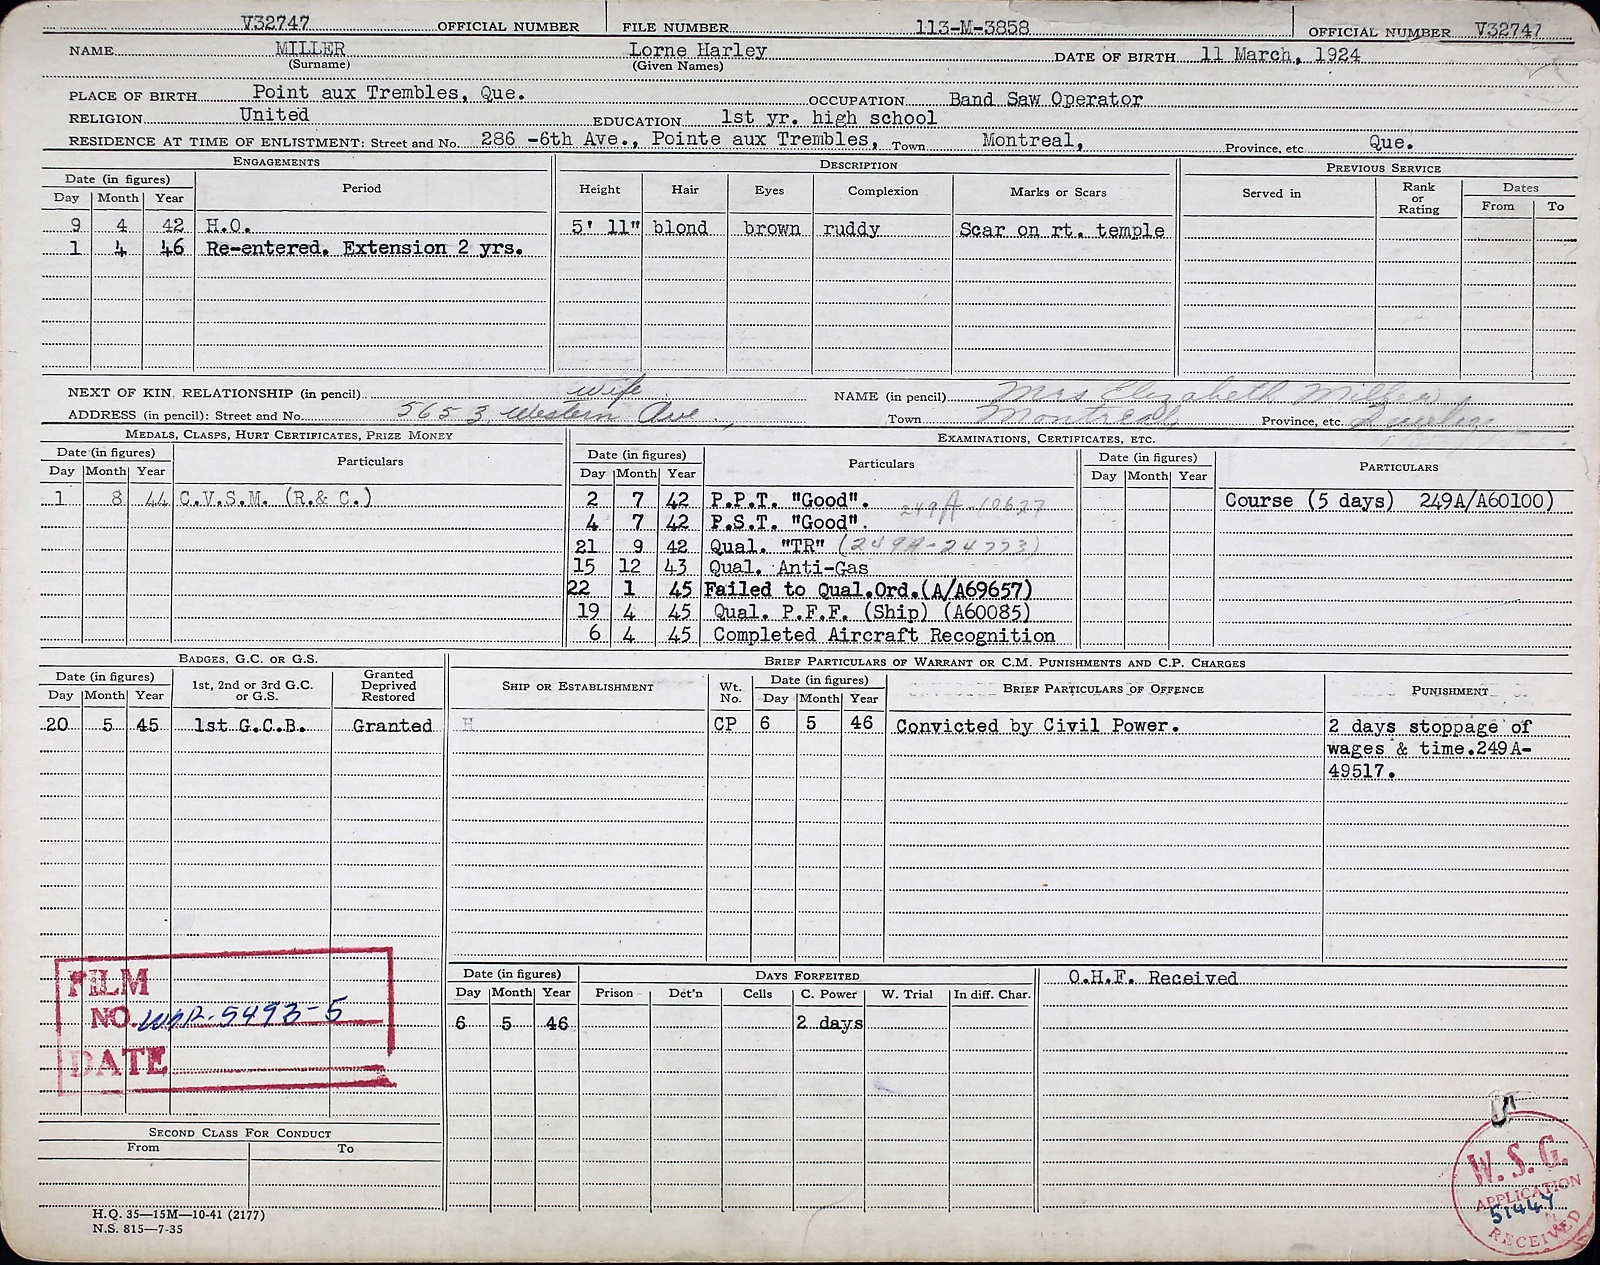 V32747 OFFICIAL NUMBER FILE NUMBER 113-M-3858 OFFICIAL NUMBER V32747
NAME MILLER Lorne Harley DATE OF BIRTH 11 March, 1924
(Surname) (Given Names)
PLACE OF BIRTH Point aux Trembles, Que. OCCUPATION Band Saw Operator
RELIGION United EDUCATION 1st yr. high school
RESIDENCE AT TIME OF ENLISTMENT: Street and No. 286 -6th Ave., Pointe aux Trembles, Town Montreal, Province, etc Que.
ENGAGEMENTS DESCRIPTION PREVIOUS SERVICE
Date (in figures) Period Height Hair Eyes Complexion Marks or Scars Served in Rank or Rating Dates
Day Month Year From To
9 4 42 H.O. 5' 11" blond brown ruddy Scar on rt. temple
1 4 46 Re-entered. Extension 2 yrs.
NEXT OF KIN RELATIONSHIP (in pencil) wife NAME (in pencil) Mrs Elizabeth Miller
ADDRESS (in pencil): Street and No. 5653 Western Ave., Town Montreal, Province, etc. Quebec
MEDALS, CLASPS, HURT CERTIFICATES, PRIZE MONEY EXAMINATIONS, CERTIFICATES, ETC.
Date (in figures) Particulars Date (in figures) Particulars Date (in figures) PARTICULARS
Day Month Year Day Month Year Day Month Year
1 8 44 C.V.S.M. (R.& C.) 2 7 42 P.P.T. "Good". 249A-10627 Course (5 days) 249A/A60100)
4 7 42 P.S.T. "Good".
21 9 42 Qual. "TR" (249A-24773)
15 12 43 Qual. Anti-Gas
22 1 45 Failed to Qual.Ord.(A/A69657)
19 4 45 Qual. P.F.F. (Ship) (A60085)
6 4 45 Completed Aircraft Recognition
BADGES, G.C. OR G.S. BRIEF PARTICULARS OF WARRANT OR C.M. PUNISHMENTS AND C.P. CHARGES
Date (in figures) 1st, 2nd or 3rd G.C. or G.S. Granted Deprived Restored SHIP OR ESTABLISHMENT Wt. No. Date (in figures) BRIEF PARTICULARS OF OFFENCE PUNISHMENT
Day Month Year Day Month Year
20 5 45 1st G.C.B. Granted H CP 6 5 46 Convicted by Civil Power. 2 days stoppage of
wages & time.249A-
49517.
FILM
NO. WNR-5493-5
DATE
Date (in figures) DAYS FORFEITED O.H.F. Received
Day Month Year Prison Det'n Cells C. Power W. Trial In diff. Char.
6 5 46 2 days
SECOND CLASS FOR CONDUCT
From To
W.S.G.
APPLICATION
51447
RECEIVED
H.Q. 35—15M—10-41 (2177)
N.S. 815—7-35